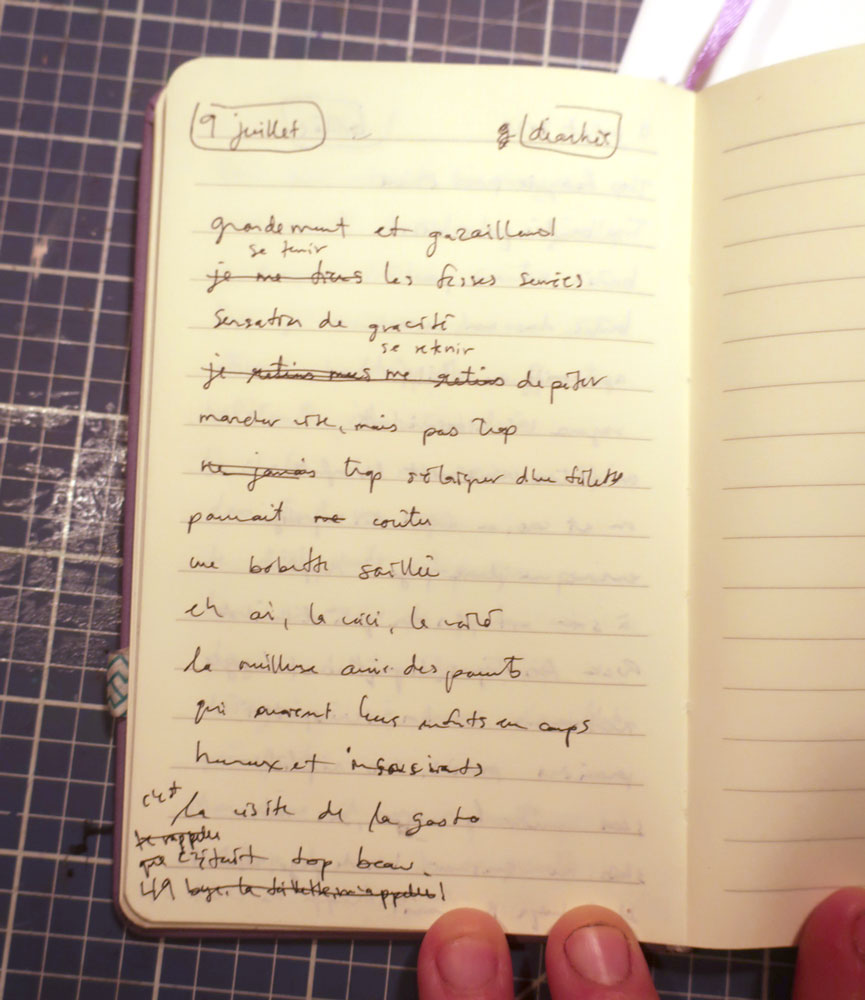 9 juillet diarrhée
grondement et gazaillend
se tenir
je me tiens les fesses serrées
sensation de gracité
se retenir
je retiens mes me retiens de péter
marcher vite, mais pas trop
ne jamais trop s'éloigner d'une toilette
pourrait me coûter
une bobette souillée
eh oui, la voici, la voilà
la meilleure amie des parents
qui envoient leurs enfants en camps
heureux et insouciants
c'est la visite de la gastro
se rappeler
que c'était trop beau.
bye, la toilette m'appelle!